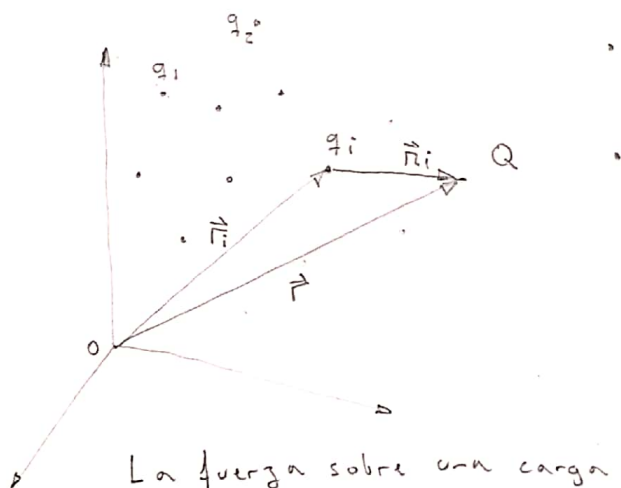 q₂
q₁
qᵢ
𝓇⃗ᵢ
Q
r⃗ᵢ
r⃗
0
La fuerza sobre una carga